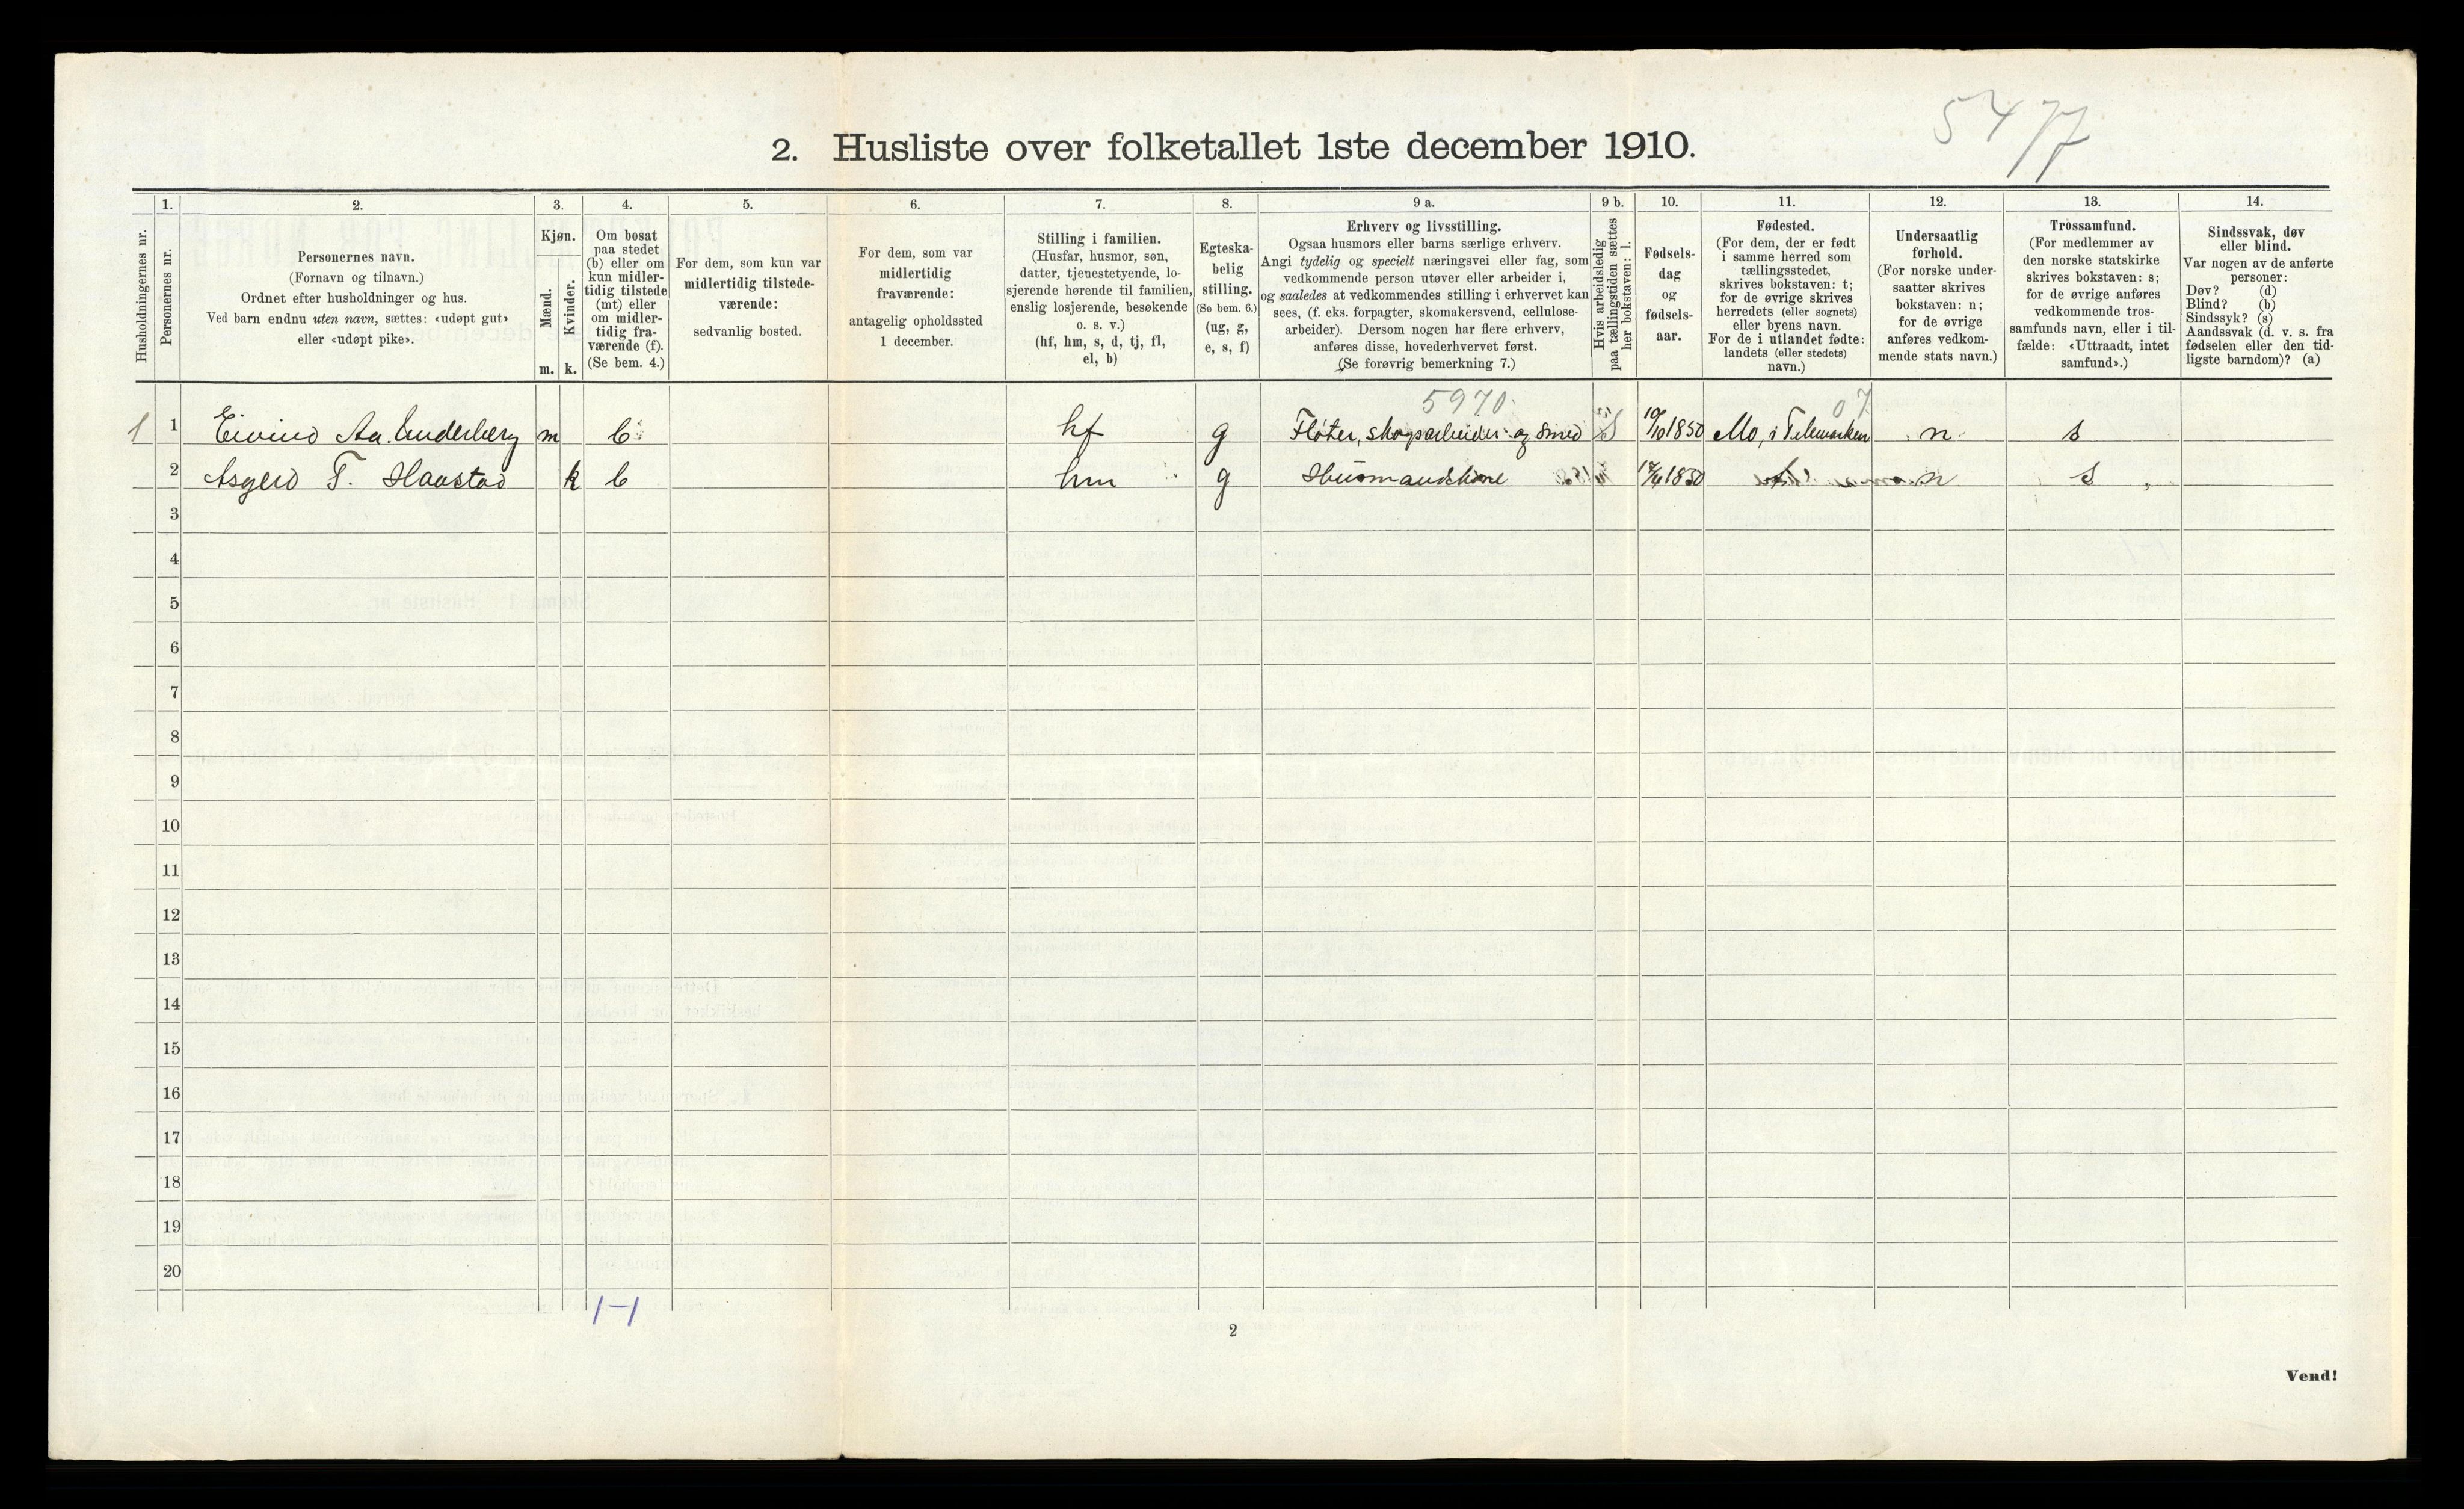 5477
2. Husliste over folketallet 1ste december 1910.
1. 2. 3. 4. 5. 6. 7. 8. 9 a. 9 b. 10. 11. 12. 13. 14.
Husholdningernes nr.
Personernes nr.
Personernes navn.
(Fornavn og tilnavn.)
Ordnet efter husholdninger og hus.
Ved barn endnu uten navn, sættes: «udøpt gut»
eller «udøpt pike».
Kjøn.
Mænd.
Kvinder.
m. k.
Om bosat
paa stedet
(b) eller om
kun midler-
tidig tilstede
(mt) eller
om midler-
tidig fra-
værende (f).
(Se bem. 4.)
For dem, som kun var
midlertidig tilstede-
værende:
sedvanlig bosted.
For dem, som var
midlertidig
fraværende:
antagelig opholdssted
1 december.
Stilling i familien.
(Husfar, husmor, søn,
datter, tjenestetyende, lo-
sjerende hørende til familien,
enslig losjerende, besøkende
o. s. v.)
(hf, hm, s, d, tj, fl,
el, b)
Egteska-
belig
stilling.
(Se bem. 6.)
(ug, g,
e, s, f)
Erhverv og livsstilling.
Ogsaa husmors eller barns særlige erhverv.
Angi tydelig og specielt næringsvei eller fag, som
vedkommende person utøver eller arbeider i,
og saaledes at vedkommendes stilling i erhvervet kan
sees, (f. eks. forpagter, skomakersvend, cellulose-
arbeider). Dersom nogen har flere erhverv,
anføres disse, hovederhvervet først.
(Se forøvrig bemerkning 7.)
Hvis arbeidsledig
paa tællingstiden sættes
her bokstaven: l.
Fødsels-
dag
og
fødsels-
aar.
Fødested.
(For dem, der er født
i samme herred som
tællingsstedet,
skrives bokstaven: t;
for de øvrige skrives
herredets (eller sognets)
eller byens navn.
For de i utlandet fødte:
landets (eller stedets)
navn.)
Undersaatlig
forhold.
(For norske under-
saatter skrives
bokstaven: n;
for de øvrige
anføres vedkom-
mende stats navn.)
Trossamfund.
(For medlemmer av
den norske statskirke
skrives bokstaven: s;
for de øvrige anføres
vedkommende tros-
samfunds navn, eller i til-
fælde: «Uttraadt, intet
samfund».)
Sindssvak, døv
eller blind.
Var nogen av de anførte
personer:
Døv? (d)
Blind? (b)
Sindssyk? (s)
Aandssvak (d. v. s. fra
fødselen eller den tid-
ligste barndom)? (a)
5970 07
1 1 Eivind Aa. m b hf g Fløter, skogsarbeider og Smed 10/10 1850 Mo, i Telemarken n s
2 Asgerd T. Haastad k b hm g Husmandskone 1850 n s
3
4
5
6
7
8
9
10
11
12
13
14
15
16
17
18
19
20
1-1
2
Vend!